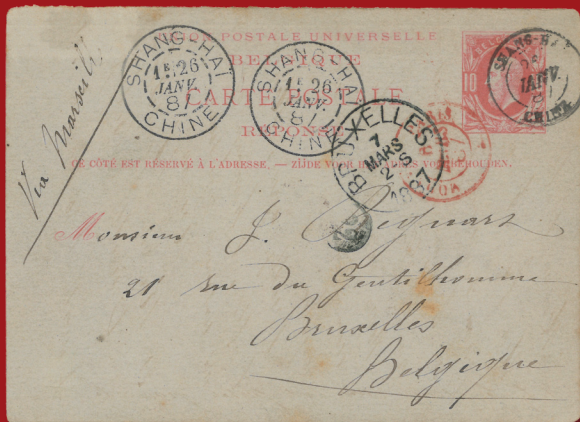 UNION POSTALE UNIVERSELLE
BELGIQUE
CARTE POSTALE
RÉPONSE
CE CÔTÉ EST RÉSERVÉ À L'ADRESSE. — ZIJDE VOOR HET ADRES VOORBEHOUDEN.
SHANG-HAI
1E 26
JANV
87
CHINE
SHANG-HAI
1E 26
JANV
87
CHINE
SHANG-HAI
26
JANV.
CHINE
10
BRUXELLES
7
MARS
2-S
1887
Via Marseille
Monsieur J.
21 rue du Gentilhomme
Bruxelles
Belgique